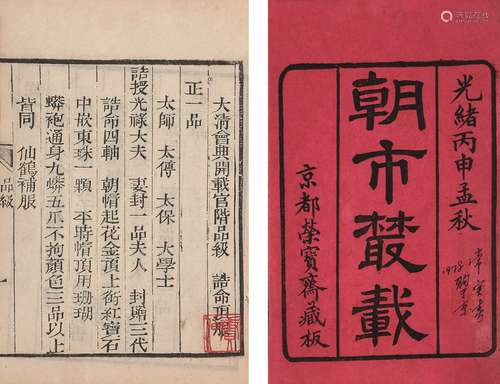 光緒丙申孟秋
朝市叢載
京都榮寶齋藏板
1978
大清會典開載官階品級 誥命頂服
正一品
太師 太傅 太保 大學士
誥授光祿大夫 妻封一品夫人 封贈三代
誥命四軸 朝帽起花金頂上銜紅寶石
中嵌東珠一顆 平時帽頂用珊瑚
蟒袍通身九蟒五爪不拘顏色三品以上
皆同 仙鶴補服
品級 一